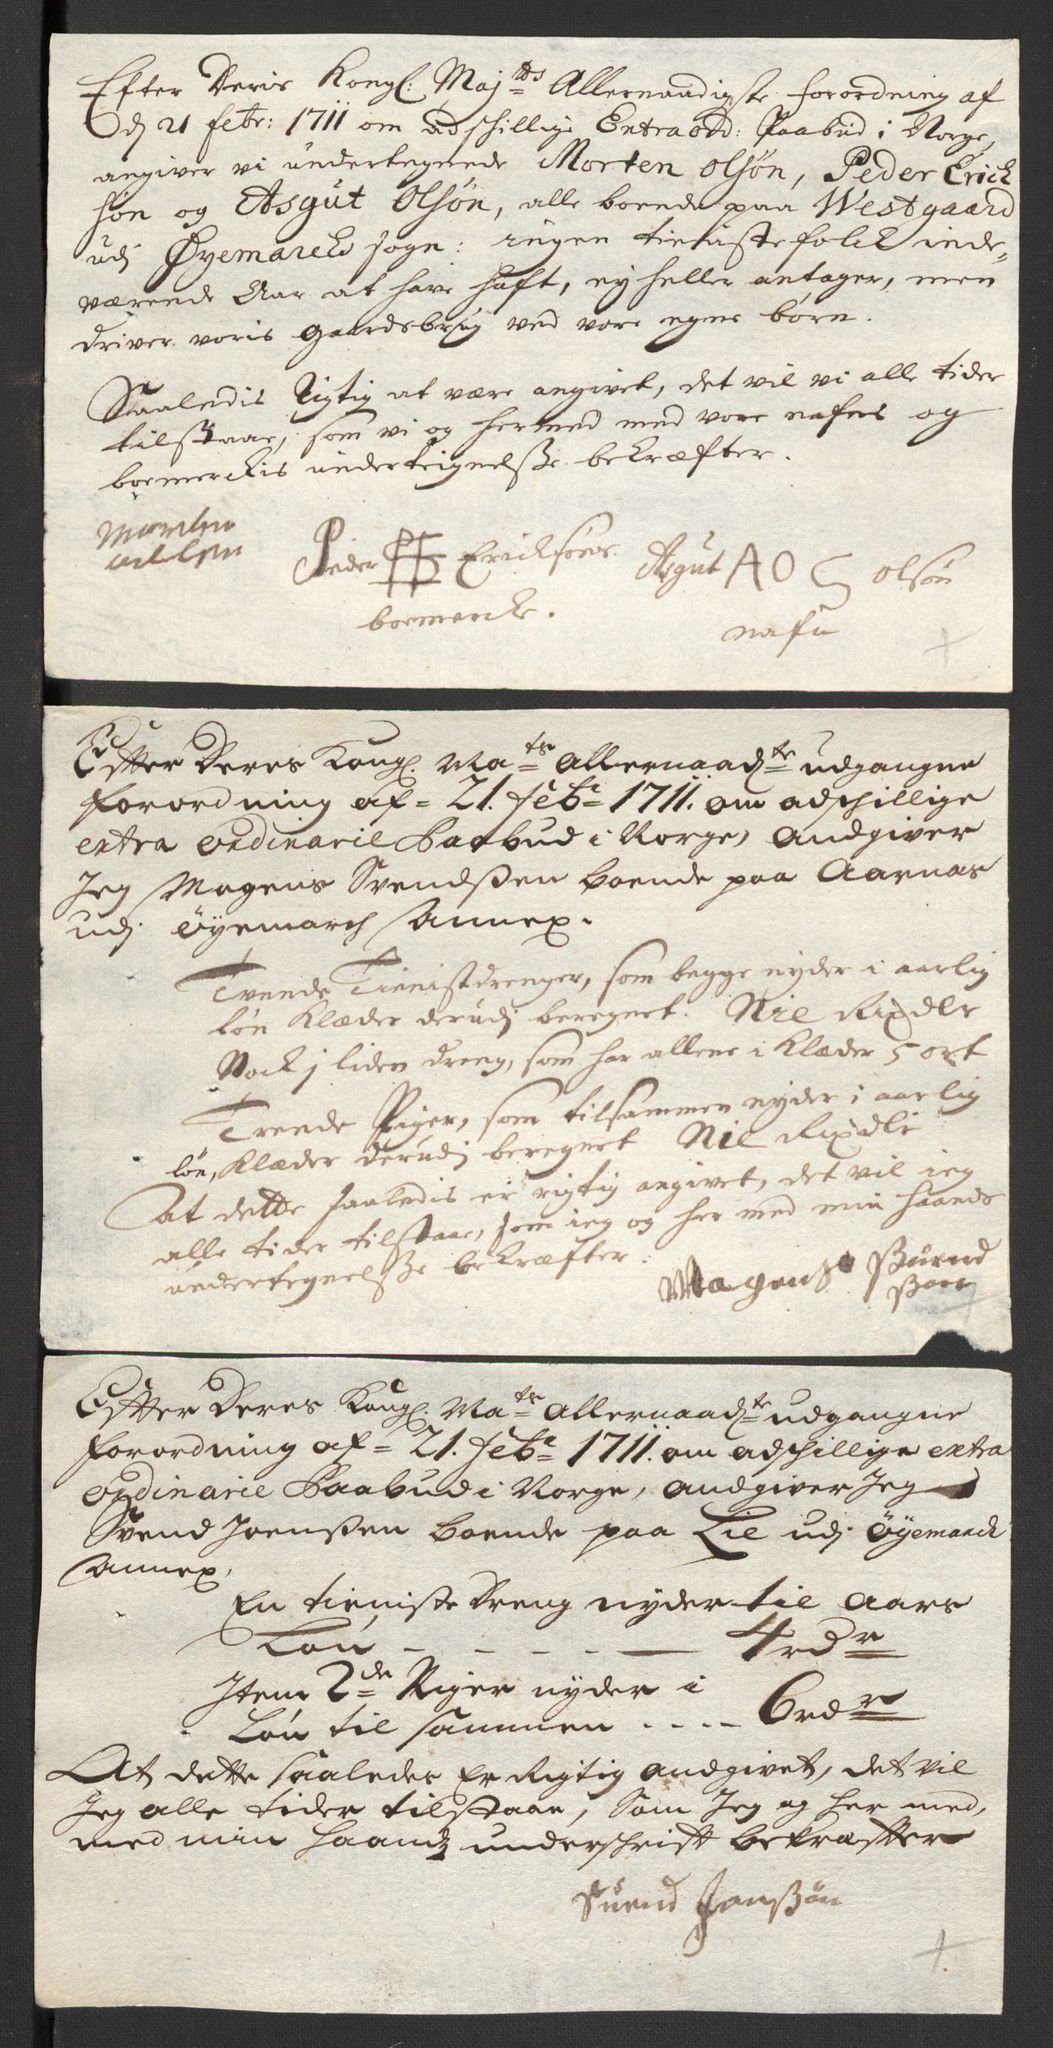 Efter Deris Kongl: Maj:tts Allernaadigste forordning af
d 21 febr: 1711 om adschillige Extraord: Paabud i Norge,
angiver vi undertegnede Morten Olsøn, Peder Erich
søn og Asgut Olsøn, alle boende paa Westgaard
udj Øyemarck sogn: ingen tieniste folck inde-
værende Aar at have haft, ey heller antager, men
driver voris gaardsbrug ved vore egne børn.
Saaledis Rigtig at være angivet, det vil vi alle tider
tilstaae, som vi og hermed med vore nafns og
boemerckis underteignelsse bekræfter.
Morten
ollsen
Peder Ericksøns
boemercke.
Asgut AO S olsøn
nafn
Effter Deres Kongl. Ma:ts Allernaad:te udgangne
forordning af 21. feb: 1711. om adschillige
extra ordinarie Paabud i Norge, andgiver
Jeg Mogens Svendßen boende paa Aarnæs
udj øyemarch Annex.
Tvende Tienistdrenger, som begge nyder i aarlig
løn Klæder derudj beregnet. Nie Rixdlr
Nock j liden dreng, som har allene i Klæder 5 ort
Trende Piger, som tilsammen nyder i aarlig
løn, Klæder derudj beregnet Nie Rixdlr
At dette saaledis er rigtig angivet, det vil ieg
alle tider tilstaae, som ieg og her med min haands
undertegnelsse bekræfter:
Magens Suend
ßøen
Effter Deres Kongl. Ma:ts Allernaad:te udgangne
forordning af 21. feb: 1711. om adschillige extra
ordinarie Paabud i Norge, andgiver Jeg
Svend Joenßen boende paa Lie udj øyemarck
Annex.
En tieniste Dreng nyder til Aars
Løn - - - - - 4 rdr
Item 2de Piger nyder i
Løn til sammen - - - - 6 rdr
At dette saaledes Er Rigtig andgivet, det vil
Jeg alle tider tilstaae, som Jeg og her med,
med min haandz underschrifft bekræffter
Suend Janßøn